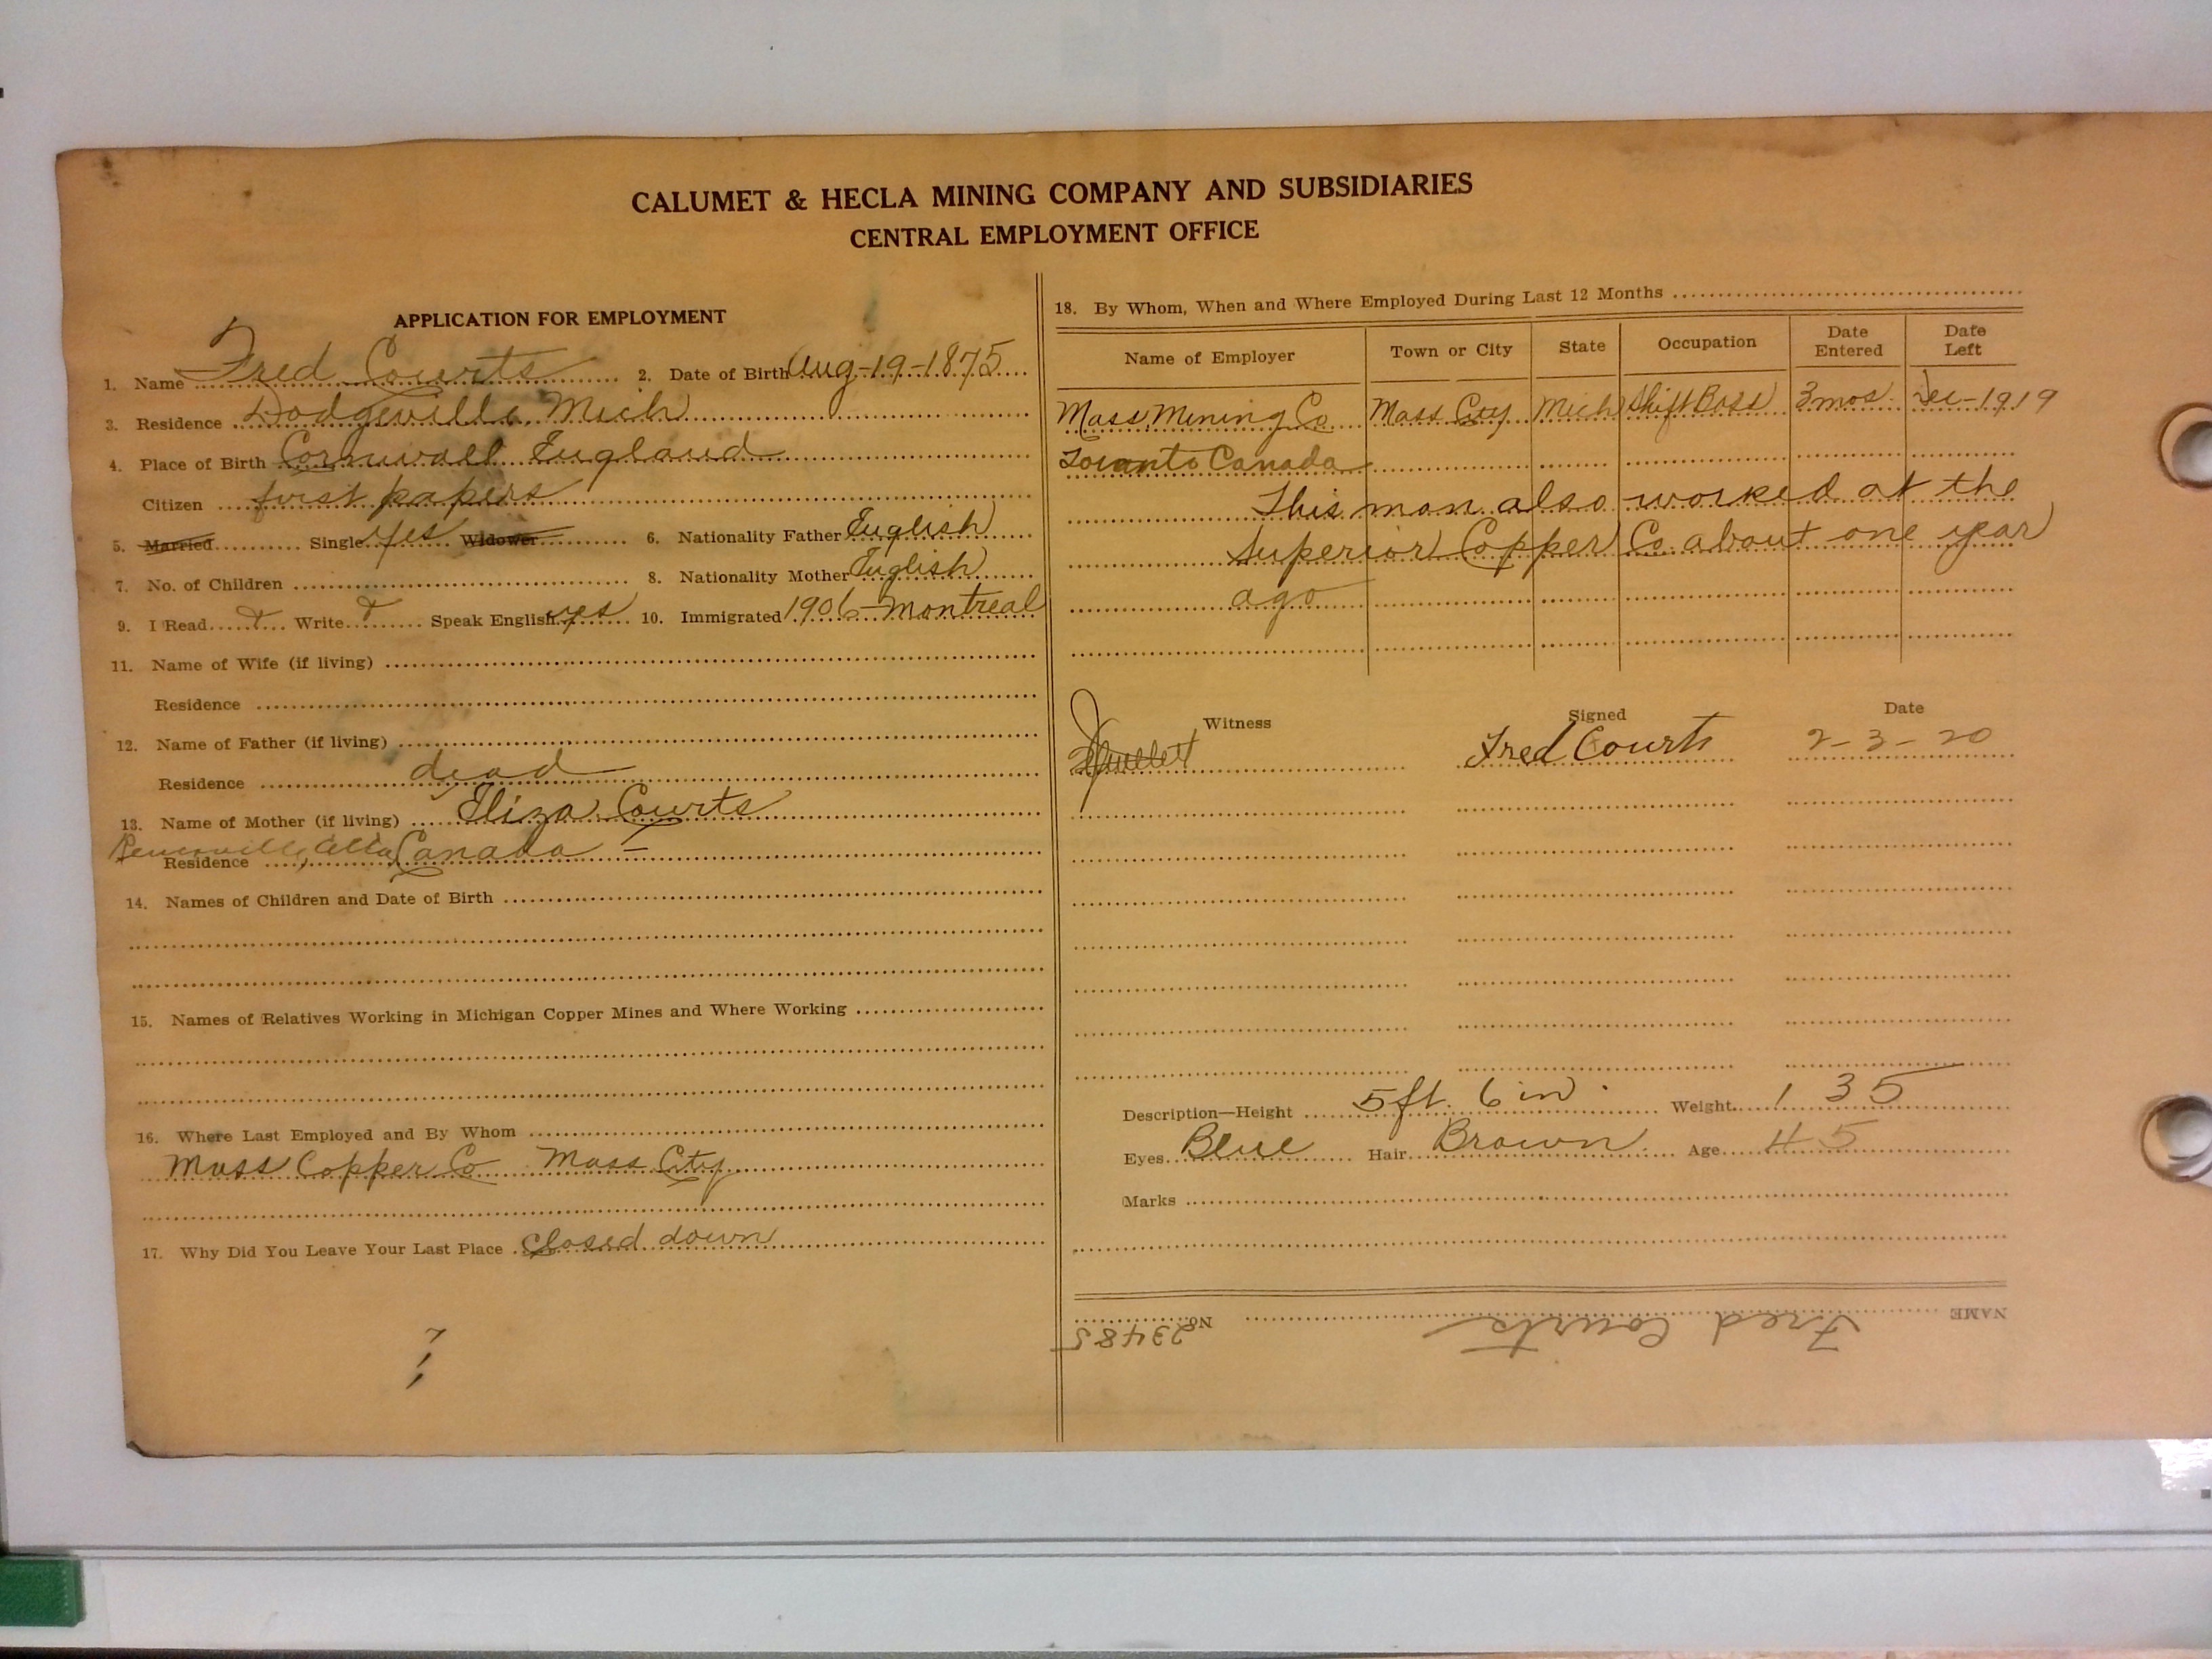 CALUMET & HECLA MINING COMPANY AND SUBSIDIARIES
CENTRAL EMPLOYMENT OFFICE
APPLICATION FOR EMPLOYMENT
1. Name Fred Courts 2. Date of Birth Aug-19-1875
3. Residence Dodgeville Mich
4. Place of Birth Cornwall England
Citizen first papers
5. Married Single yes Widower 6. Nationality Father English
7. No. of Children 8. Nationality Mother English
9. I Read Write Speak English yes 10. Immigrated 1906-Montreal
11. Name of Wife (if living)
Residence
12. Name of Father (if living)
Residence dead
13. Name of Mother (if living) Eliza Courts
Residence Alta Canada -
14. Names of Children and Date of Birth
15. Names of Relatives Working in Michigan Copper Mines and Where Working
16. Where Last Employed and By Whom
Mass Copper Co Mass City
17. Why Did You Leave Your Last Place Closed down
18. By Whom, When and Where Employed During Last 12 Months
Name of Employer Town or City State Occupation Date Entered Date Left
Mass Mining Co Mass City Mich Shift Boss 3 mos Dec-1919
Toranto Canada
This man also worked at the
Superior Copper Co about one year
ago
Witness Signed Date
Fred Courts 2-3-20
Description—Height 5ft. 6 in Weight 135
Eyes Blue Hair Brown Age 45
Marks
NAME Fred Courts No. 23485